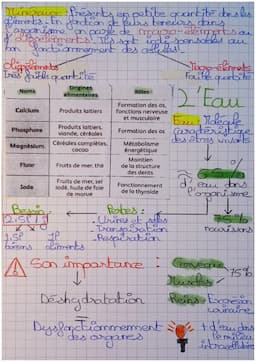 Minéraux: Présents en petite quantité dans les
aliments. En fonction de leurs teneurs dans
l'organisme on parle de macro-éléments ou
d'oligoéléments. Ils sont indispensables au
bon fonctionnement des cellules.
Oligoéléments
Très faible quantité
Macro-éléments
faible quantité
Noms Origines alimentaires Rôles
Calcium Produits laitiers Formation des os, fonctions nerveuse et musculaire
Phosphore Produits laitiers, viande, céréales Formation des os
Magnésium Céréales complètes, cacao Métabolisme énergétique
Fluor Fruits de mer, thé Maintien de la structure des dents
Iode Fruits de mer, sel iodé, huile de foie de morue Fonctionnement de la thyroïde
L'Eau
Eau: Molécule
caractéristique
des êtres vivants
%
d'eau dans
l'organisme
Besoin
2,5L/J
1,5L 1L
boissons aliments
Pertes:
. Urines et selles
. Transpiration
. Respiration
75%
nourrissons
Son importance:
Déshydratation
Dysfonctionnement
des organes
Cerveau
Muscles
75%
Reins
+ d'eau dans
le milieu
intracellulaire